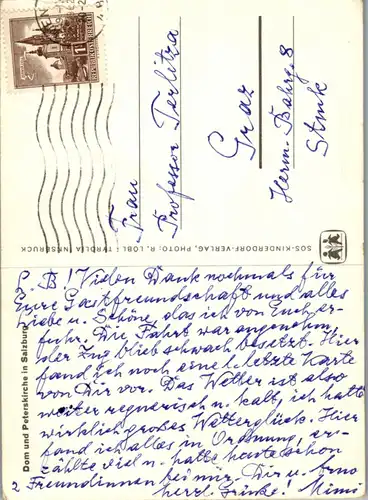 Frau
Professor Terlitza
Graz
Herm.-Bahrg. 8
Stmk
SOS-KINDERDORF-VERLAG, PHOTO: R. LÖBL - TYROLIA INNSBRUCK
Dom und Peterskirche in Salzburg
L. B! Vielen Dank nochmals für
Eure Gastfreundschaft und alles
Liebe u. Schöne, das ich von Euch er-
fuhr. Die Fahrt war angenehm,
der Zug blieb schwach besetzt. Hier
fand ich noch eine letzte Karte
von Dir vor. Das Wetter ist also
weiter regnerisch u. kalt, ich hatte
wirklich großes Wetterglück. Hier
fand ich alles in Ordnung, er-
zählte viel u. hatte heute schon
2 Freundinnen bei mir. Dir u. Arno
herzl. Grüße! Mimi